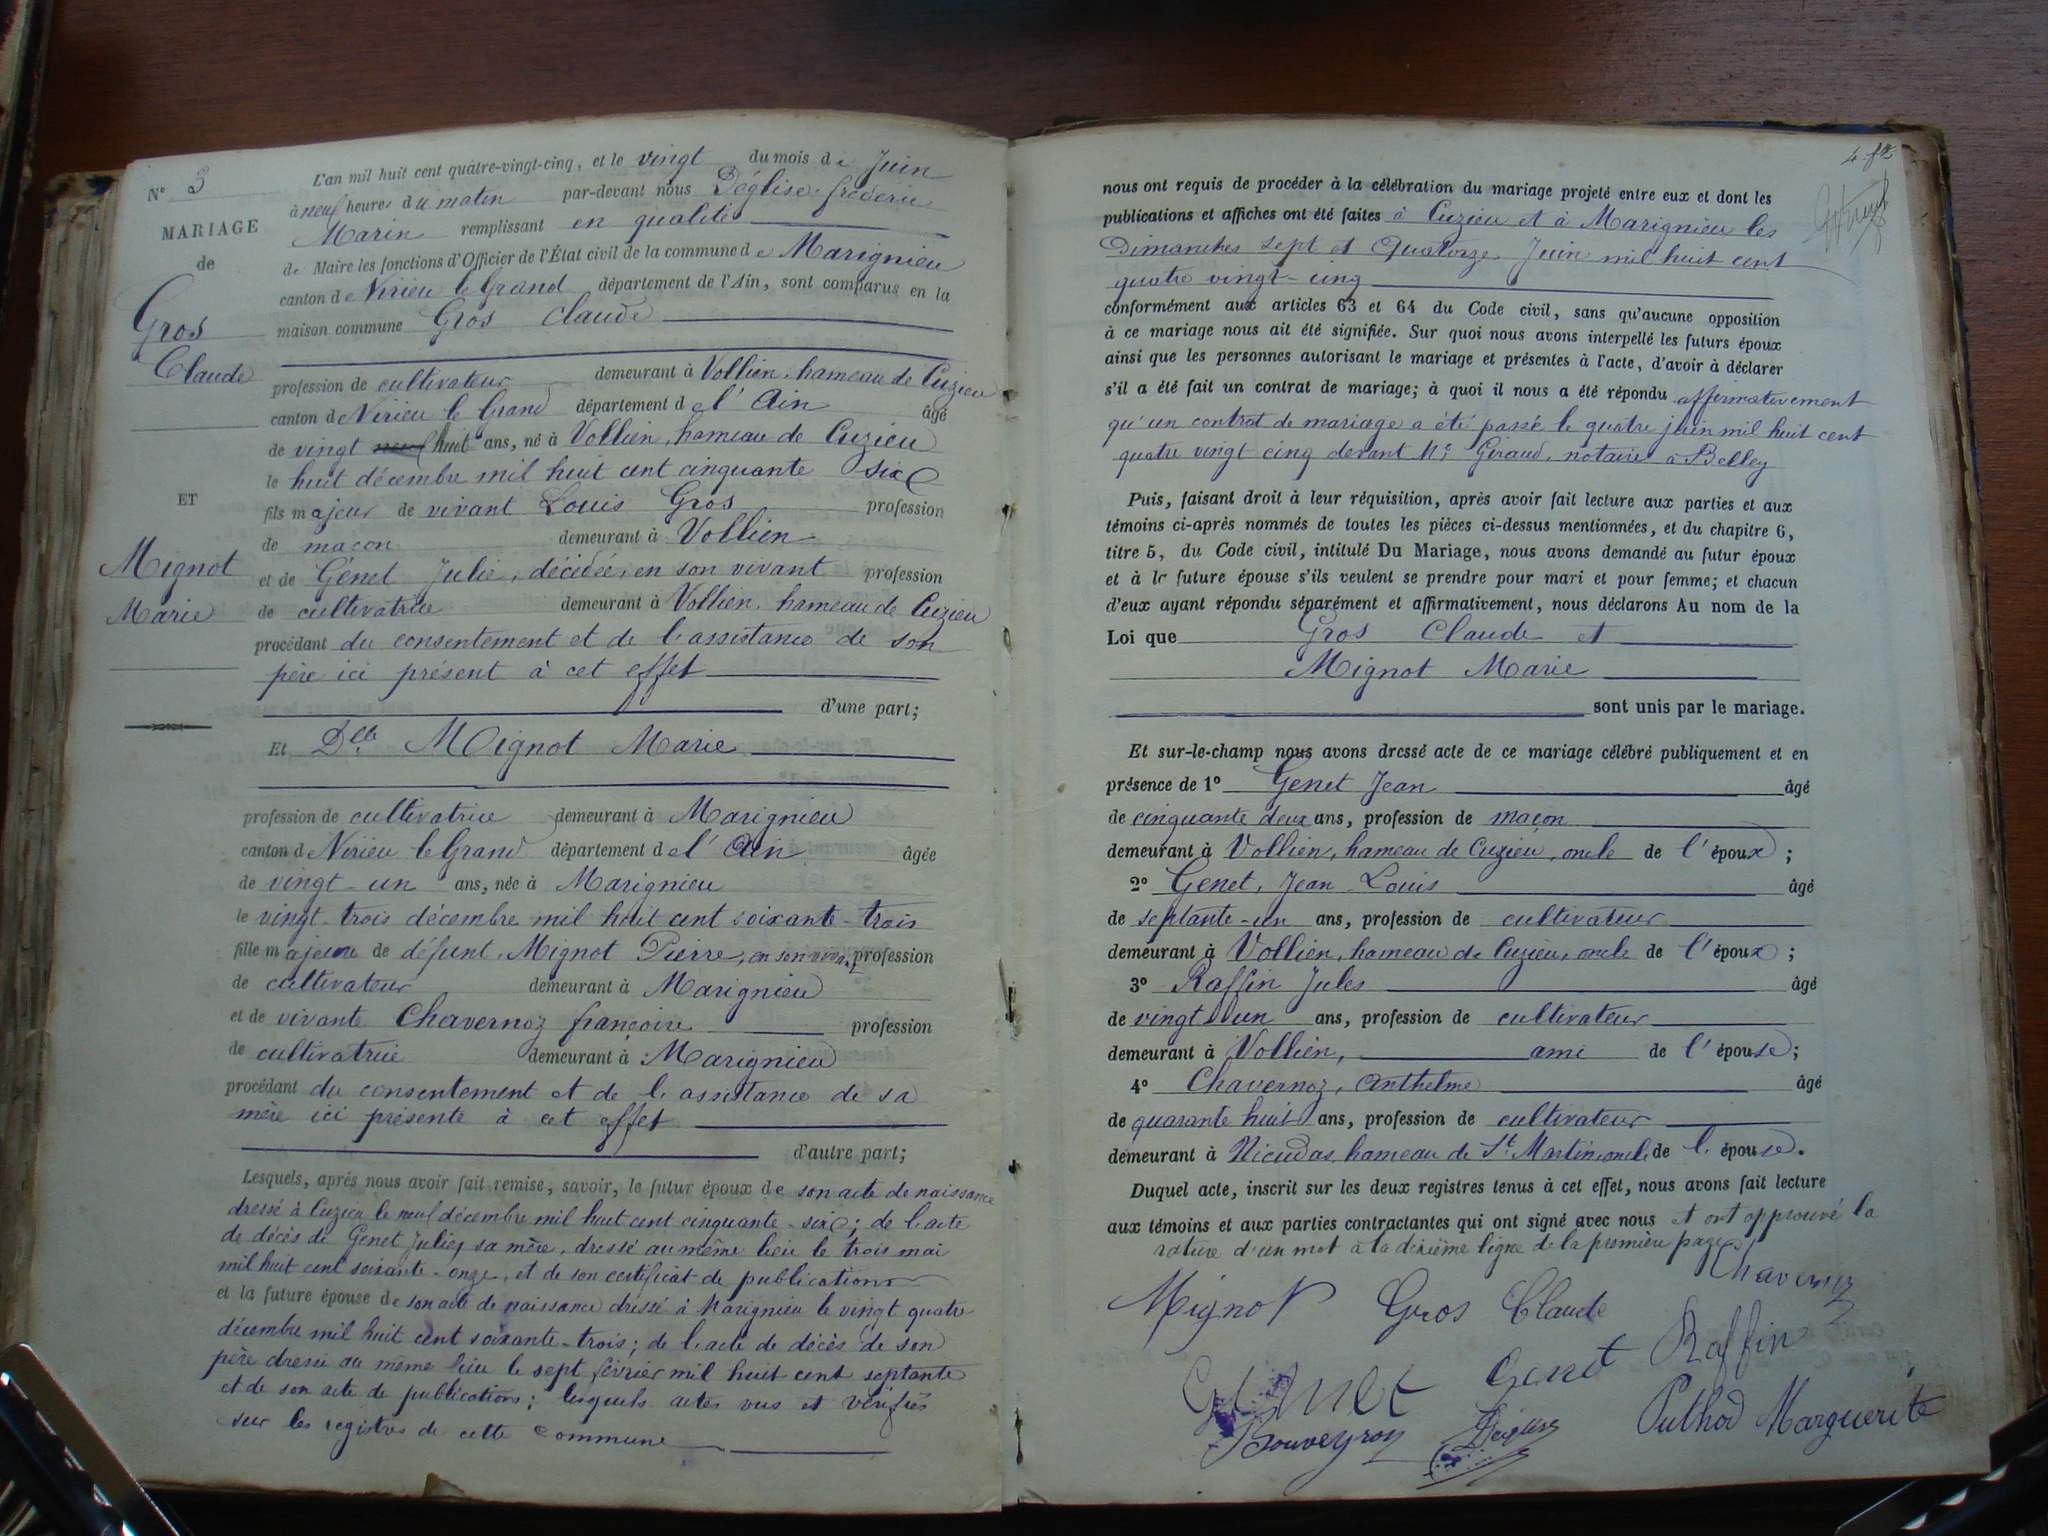 N° 3
MARIAGE
de
Gros
Claude
ET
Mignot
Marie
L'an mil huit cent quatre-vingt-cinq, et le vingt du mois de Juin
à neuf heures du matin par-devant nous Déglise frédéric
Marin remplissant en qualité
de Maire les fonctions d'Officier de l'État civil de la commune de Marignieu
canton de Virieu le Grand département de l'Ain, sont comparus en la
maison commune Gros Claude
profession de cultivateur demeurant à Vollien, hameau de Cuzieu
canton de Virieu le Grand département de l'Ain âgé
de vingt neuf huit ans, né à Vollien, hameau de Cuzieu
le huit décembre mil huit cent cinquante six
fils majeur de vivant Louis Gros profession
de maçon demeurant à Vollien
et de Génet Julie, décédée, en son vivant profession
de cultivatrice demeurant à Vollien, hameau de Cuzieu
procédant du consentement et de l'assistance de son
père ici présent à cet effet
d'une part;
Et Dlle Mignot Marie
profession de cultivatrice demeurant à Marignieu
canton de Virieu le Grand département de l'Ain âgée
de vingt-un ans, née à Marignieu
le vingt-trois décembre mil huit cent soixante-trois
fille majeure de défunt Mignot Pierre, en son vivant profession
de cultivateur demeurant à Marignieu
et de vivante Chavernoz françoise profession
de cultivatrice demeurant à Marignieu
procédant du consentement et de l'assistance de sa
mère ici présente à cet effet
d'autre part;
Lesquels, après nous avoir fait remise, savoir, le futur époux de son acte de naissance
dressé à Cuzieu le neuf décembre mil huit cent cinquante-six; de l'acte
de décès de Genet Julie, sa mère, dressé au même lieu le trois mai
mil huit cent soixante-onze, et de son certificat de publications
et la future épouse de son acte de naissance dressé à Marignieu le vingt quatre
décembre mil huit cent soixante-trois; de l'acte de décès de son
père dressé au même lieu le sept février mil huit cent septante
et de son acte de publications; lesquels actes vus et vérifiés
sur les registres de cette commune
nous ont requis de procéder à la célébration du mariage projeté entre eux et dont les
publications et affiches ont été faites à Cuzieu et à Marignieu les
Dimanches sept et Quatorze Juin mil huit cent
quatre vingt-cinq
conformément aux articles 63 et 64 du Code civil, sans qu'aucune opposition
à ce mariage nous ait été signifiée. Sur quoi nous avons interpellé les futurs époux
ainsi que les personnes autorisant le mariage et présentes à l'acte, d'avoir à déclarer
s'il a été fait un contrat de mariage; à quoi il nous a été répondu affirmativement
qu'un contrat de mariage a été passé le quatre juin mil huit cent
quatre vingt cinq devant Me Giraud, notaire à Belley
Puis, faisant droit à leur réquisition, après avoir fait lecture aux parties et aux
témoins ci-après nommés de toutes les pièces ci-dessus mentionnées, et du chapitre 6,
titre 5, du Code civil, intitulé Du Mariage, nous avons demandé au futur époux
et à la future épouse s'ils veulent se prendre pour mari et pour femme; et chacun
d'eux ayant répondu séparément et affirmativement, nous déclarons Au nom de la
Loi que Gros Claude et
Mignot Marie
sont unis par le mariage.
Et sur-le-champ nous avons dressé acte de ce mariage célébré publiquement et en
présence de 1° Genet Jean âgé
de cinquante deux ans, profession de maçon
demeurant à Vollien, hameau de Cuzieu, oncle de l'époux;
2° Genet, Jean Louis âgé
de septante-un ans, profession de cultivateur
demeurant à Vollien, hameau de Cuzieu, oncle de l'époux;
3° Raffin Jules âgé
de vingt un ans, profession de cultivateur
demeurant à Vollien, ami de l'épouse;
4° Chavernoz, Anthelme âgé
de quarante huit ans, profession de cultivateur
demeurant à hameau de St Martin, oncle de l'épouse.
Duquel acte, inscrit sur les deux registres tenus à cet effet, nous avons fait lecture
aux témoins et aux parties contractantes qui ont signé avec nous et ont approuvé la
rature d'un mot à la dixième ligne de la première page
Chavernoz
Mignot Gros Claude
Genet Genet Raffin
Bouveyron Déglise Puthod Marguerite